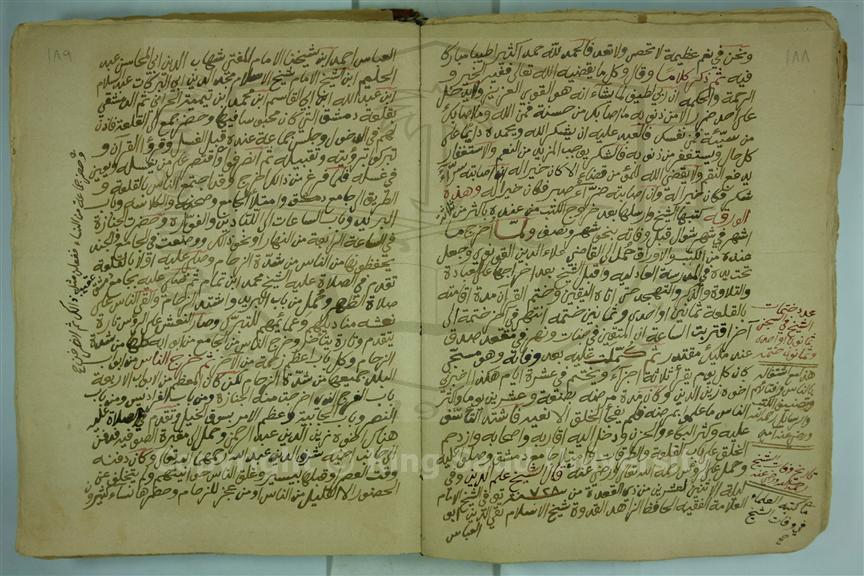 ١٨٨
ونحن في نعم عظيمة لا تحصى ولا تعد فالحمد لله حمدا كثيرا طيبا مباركا
فيه ثم ذكر كلاما وقال وكل ما يقضيه الله تعالى ففيه الخير و
الرحمة والحكمة ان ربي لطيف لما يشاء انه هو القوي العزيز ولا يدخل
على احد ضرر الا من ذنوبه ما اصابك من حسنة فمن الله وما اصابك
من سيئة فمن نفسك فالعبد عليه ان يشكر الله ويحمده دائما على
كل حال ويستغفر من ذنوبه فالشكر يوجب المزيد من النعم والاستغفار
يدفع النقم ولا يقضي الله للمؤمن من قضاء الا كان خيرا له ان اصابته سراء
شكر فكان خيرا له وان اصابته ضراء صبر فكان خيرا له وهذه
الورقة كتبها الشيخ وارسلها بعد خروج الكتب من عنده باكثر من ثلاثة
اشهر في شهر شوال قبل وفاته بنحو شهر ونصف ولما اخرج ما
عنده من الكتب والاوراق حمل الى القاضي علاء الدين القونوي وجعل
تحت يده في المدرسة العادلية واقبل الشيخ بعد اخراجها على العبادة
والتلاوة والذكر والتهجد حتى اتاه اليقين وختم القرآن مدة اقامته
بالقلعة ثمانين او احدى وثمانين ختمة انتهى في اخر ختمة الى
آخر اقتربت الساعة ان المتقين في جنات ونهر في مقعد صدق
عند مليك مقتدر ثم كملت عليه بعد وفاته وهو مسجى
كان كل يوم يقرأ ثلاثة اجزاء ويختم في عشرة ايام هكذا اخبرني
اخوه زين الدين وكان مدة مرضه بضعة وعشرين يوما واكثر
الناس ما علموا بمرضه فلم يفجأ الخلق الا نعيه فاشتد التأسف
عليه وكثر البكاء والحزن ودخل اليه اقاربه واصحابه وازدحم
الخلق على باب القلعة والطرقات وامتلأ جامع دمشق وصلوا عليه
وحمل على الرؤس رحمه الله تعالى ورضي عنه قال الشيخ علم الدين وفي
ليلة الاثنين العشرين من ذي القعدة من ٧٢٨ توفي الشيخ الامام
العلامة الفقيه الحافظ الزاهد القدوة شيخ الاسلام تقي الدين ابو
العباس
عدد ختمات
الشيخ في السجن
ثمانون او احدى
وثمانون ختمة
١٨٩
العباس احمد ابن شيخنا الامام المفتي شهاب الدين ابي المحاسن عبد
الحليم ابن الشيخ الامام شيخ الاسلام مجد الدين ابي البركات عبد السلام
ابن عبد الله ابن ابي القاسم ابن محمد ابن تيمية الحراني ثم الدمشقي
بقلعة دمشق التي كان محبوسا فيها وحضر جمع الى القلعة فاذن
لهم في الدخول وجلس جماعة عنده قبل الغسل وقرؤا القرآن و
تبركوا برؤيته وتقبيله ثم انصرفوا واقتصر على من يغسله ويعين
في غسله فلما فرغ من ذلك اخرج وقد اجتمع الناس بالقلعة و
الطريق الى جامع دمشق وامتلأ الجامع وصحنه والكلاسة وباب
البريد وباب الساعات الى اللبادين والفوارة وحضرت الجنازة
في الساعة الرابعة من النهار او نحو ذلك ووضعت في الجامع والجند
يحفظونها من الناس من شدة الزحام وصلي عليه اولا بالقلعة
تقدم في الصلاة عليه الشيخ محمد ابن تمام ثم صلي عليه بجامع دمشق
صلاة الظهر وحمل من باب البريد واشتد الزحام والقى الناس على
نعشه مناديلهم وعمائمهم للتبرك وصار النعش على الرؤس تارة
يتقدم وتارة يتأخر وخرج الناس من الجامع من ابوابه كلها من شدة
الزحام وكل باب اعظم زحمة من الآخر ثم خرج الناس من ابواب
البلد جميعها من شدة الزحام لكن كان المعظم من الابواب الاربعة
باب الفرج الذي اخرجت منه الجنازة ومن باب الفراديس ومن باب
النصر وباب الجابية وعظم الامر بسوق الخيل وتقدم في الصلاة عليه
هناك اخوه زين الدين عبد الرحمن وحمل الى مقبرة الصوفية فدفن
الى جانب اخيه شرف الدين عبد الله رحمهما الله تعالى وكان دفنه
وقت العصر او قبلها بيسير وغلق الناس حوانيتهم ولم يتخلف عن
الحضور الا القليل من الناس او من عجز للزحام وحضرها نساء كثير و